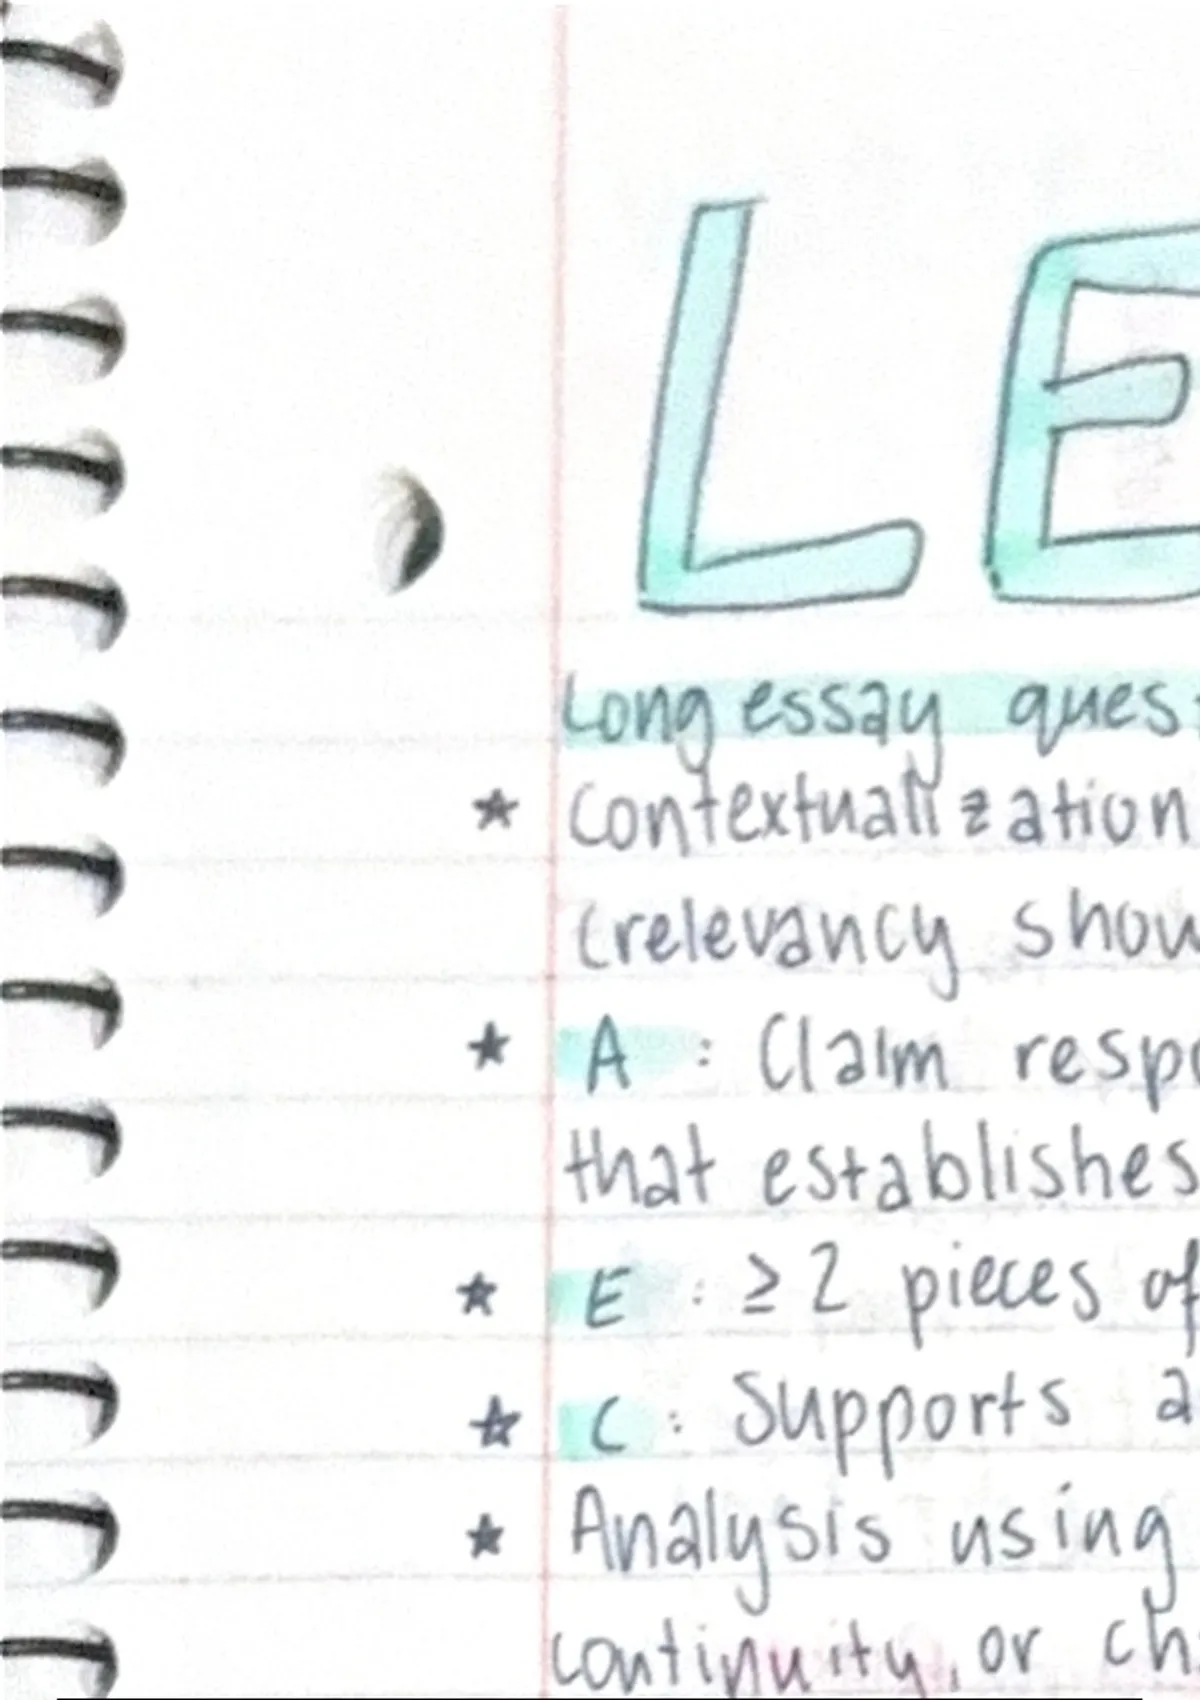 LE
Long essay ques
★ Contextualization
(relevancy show
★ A : Claim resp
that establishes
★ E : ≥ 2 pieces of
★ C : Supports a
★ Analysis using
continuity, or ch